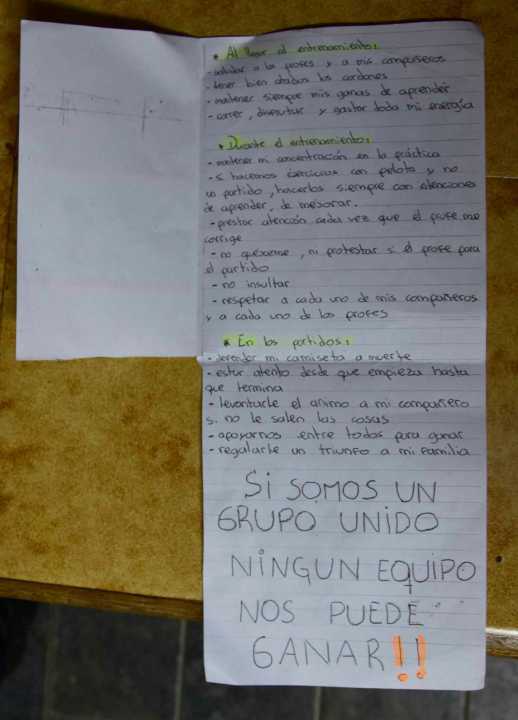 * Al llegar al entrenamiento:
- saludar a los profes y a mis compañeros
- tener bien atados los cordones
- mantener siempre mis ganas de aprender
- correr, disfrutar y gastar toda mi energía
* Durante el entrenamiento:
- mantener mi concentración en la práctica
- si hacemos ejercicios con pelota y no
un partido, hacerlos siempre con intenciones
de aprender, de mejorar.
- prestar atención cada vez que el profe me
corrige
- no quejarme, ni protestar si el profe para
el partido
- no insultar
- respetar a cada uno de mis compañeros
y a cada uno de los profes
* En los partidos:
- defender mi camiseta a muerte
- estar atento desde que empieza hasta
que termina
- levantarle el animo a mi compañero
si no le salen las cosas
- apoyarnos entre todos para ganar
- regalarle un triunfo a mi familia
Si SOMOS UN
GRUPO UNIDO
NiNGUN EQUIPO
NOS PUEDE
GANAR!!